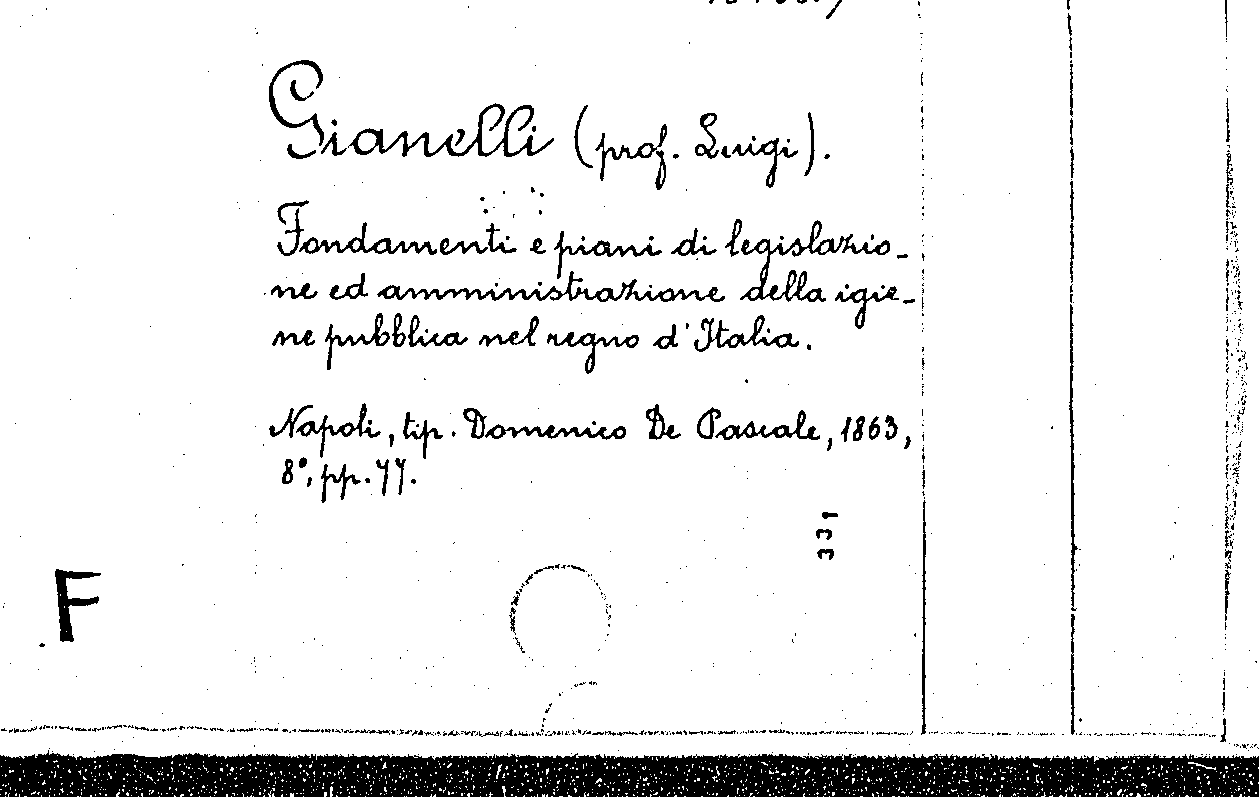 Gianelli (prof. Luigi).
Fondamenti e piani di legislazio-
ne ed amministrazione della igie-
ne pubblica nel regno d'Italia.
Napoli, tip. Domenico De Pascale, 1863,
8°, pp. 77.
331
F